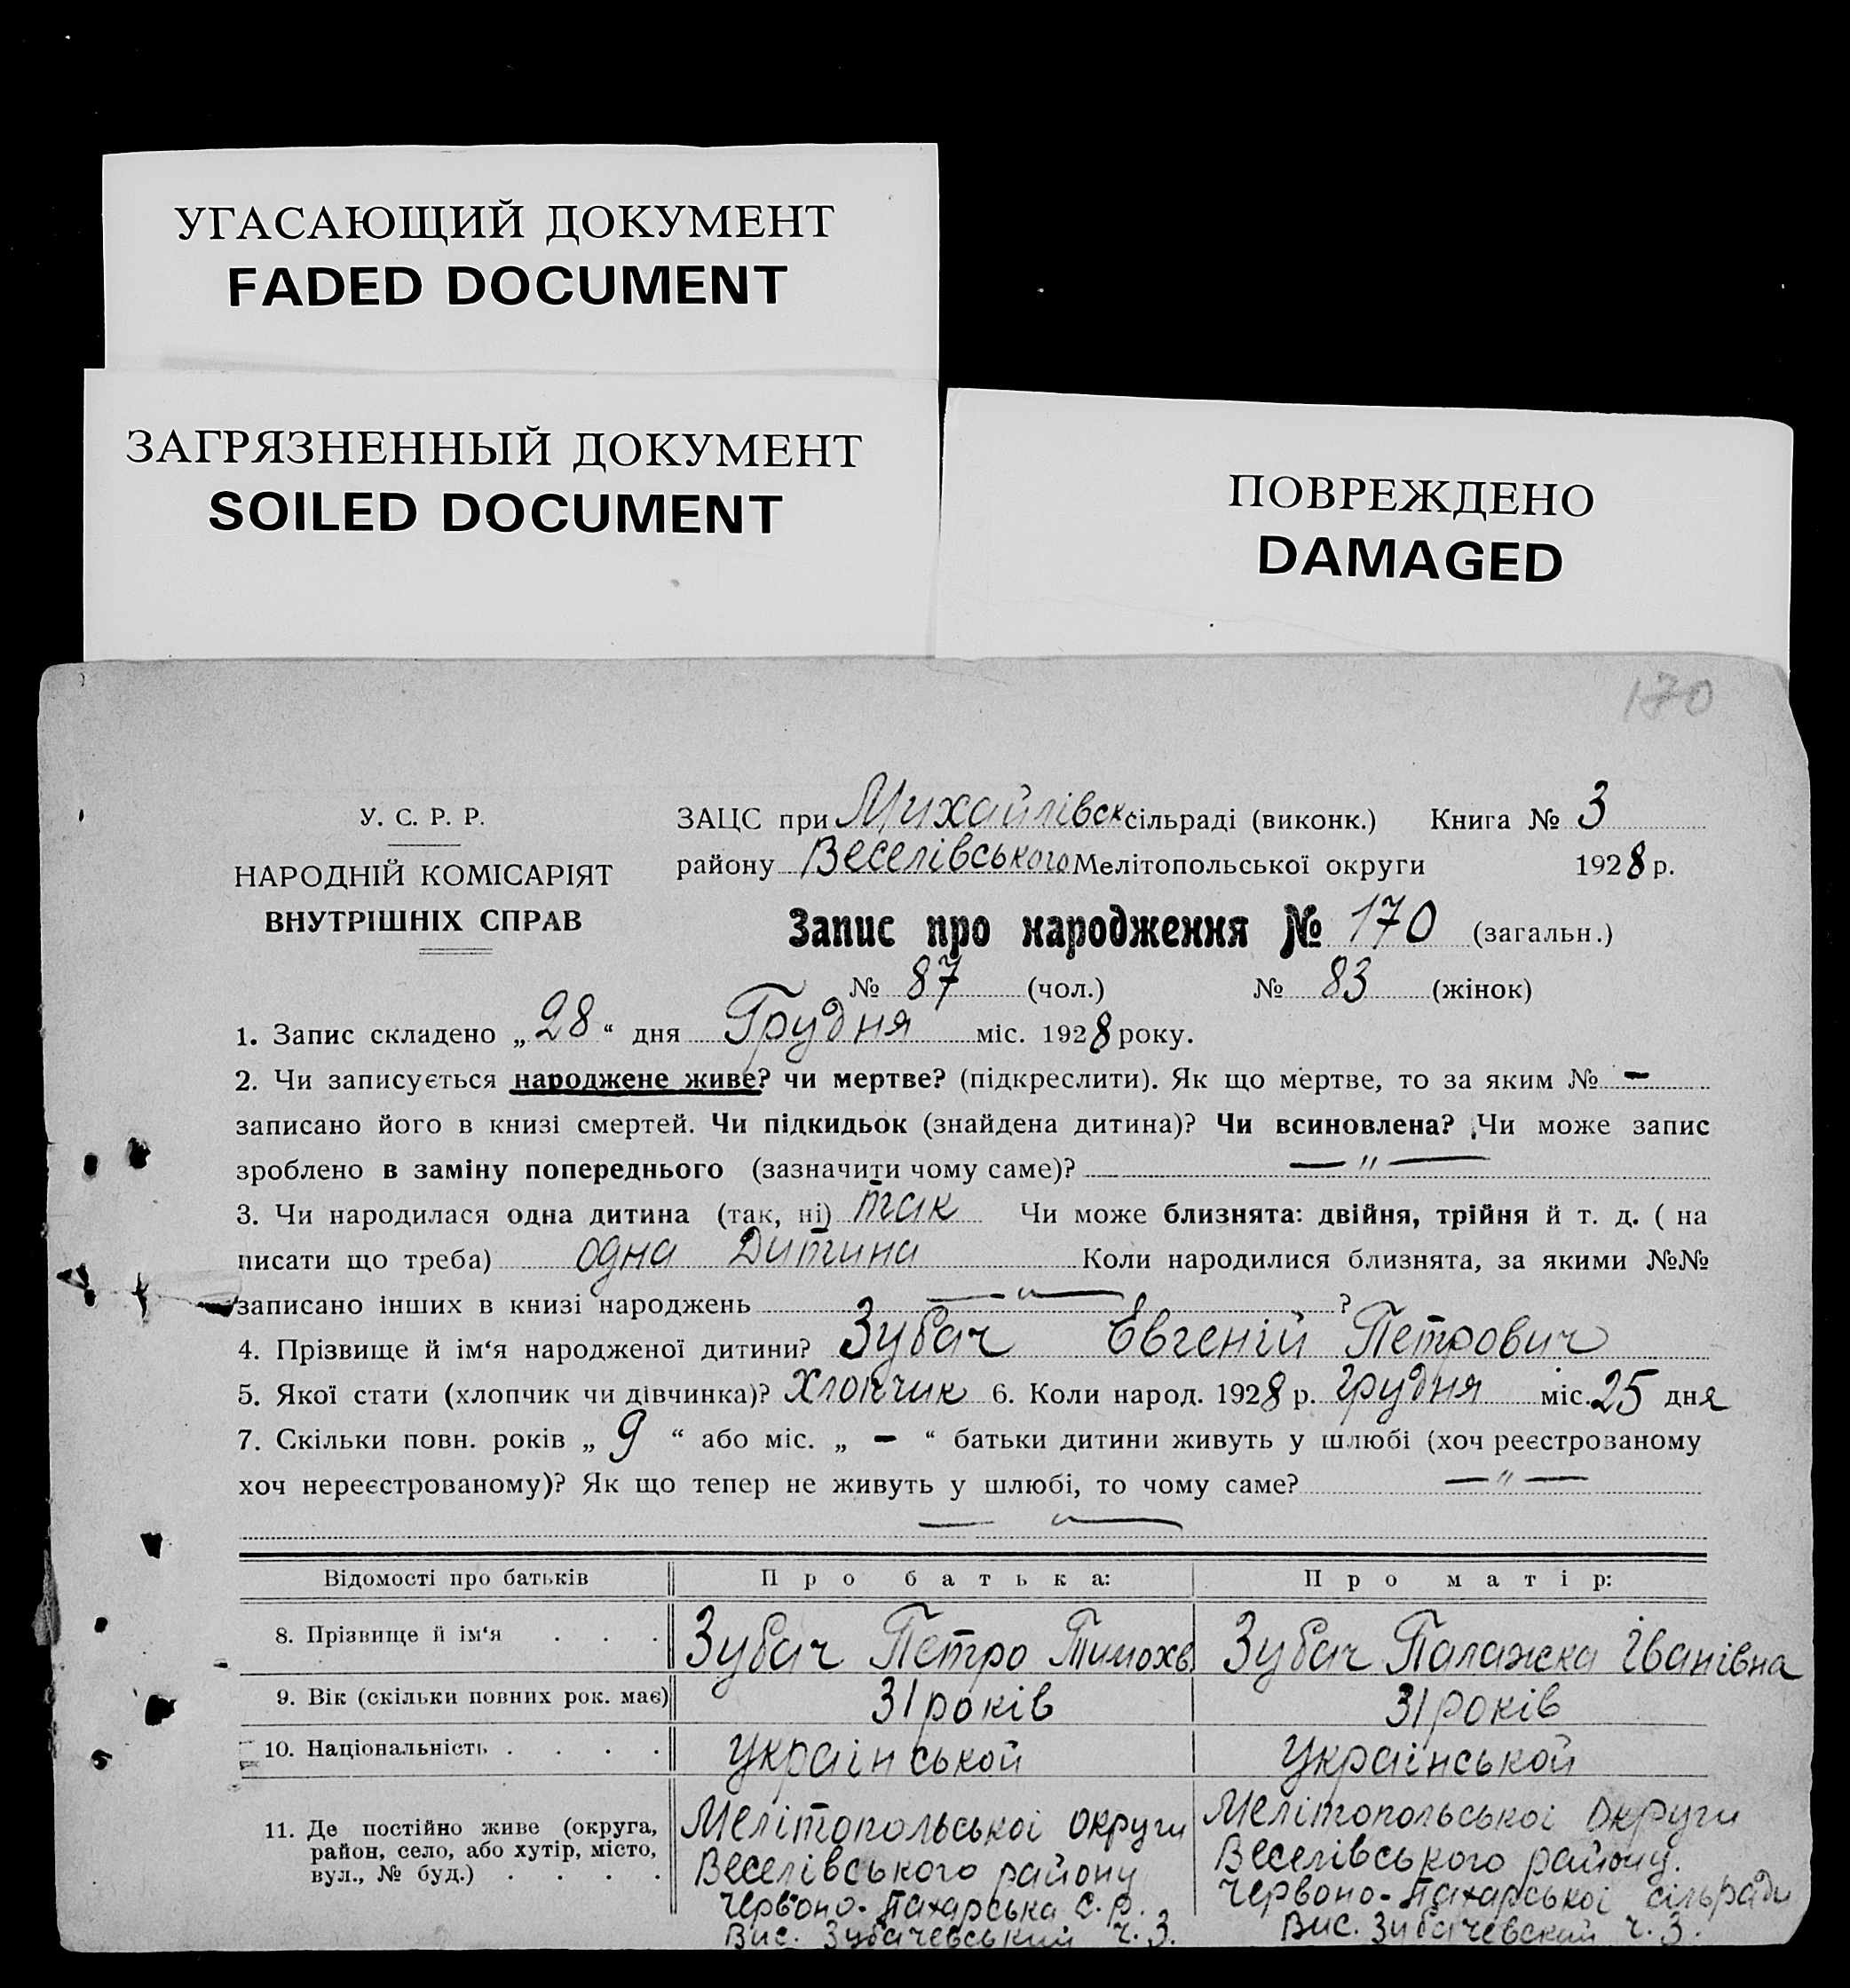 УГАСАЮЩИЙ ДОКУМЕНТ
FADED DOCUMENT
ЗАГРЯЗНЕННЫЙ ДОКУМЕНТ
SOILED DOCUMENT
ПОВРЕЖДЕНО
DAMAGED
170
У. С. Р. Р.
НАРОДНІЙ КОМІСАРІЯТ
ВНУТРІШНІХ СПРАВ
ЗАЦС при Михайлівск сільраді (виконк.) Книга № 3
району Веселівського Мелітопольської округи 1928 р.
Запис про народження № 170 (загальн.)
№ 87 (чол.) № 83 (жінок)
1. Запис складено „28“ дня Грудня міс. 1928 року.
2. Чи записується народжене живе? чи мертве? (підкреслити). Як що мертве, то за яким № —
записано його в книзі смертей. Чи підкидьок (знайдена дитина)? Чи всиновлена? Чи може запис
зроблено в заміну попереднього (зазначити чому саме)? — „ —
3. Чи народилася одна дитина (так, ні) так Чи може близнята: двійня, трійня й т. д. ( на
писати що треба) одна Дитина Коли народилися близнята, за якими №№
записано інших в книзі народжень — „ — ?
4. Прізвище й ім‘я народженої дитини? Зубач Евгеній Петрович
5. Якої стати (хлопчик чи дівчинка)? Хлопчик 6. Коли народ. 1928 р. грудня міс. 25 дня
7. Скільки повн. років „ 9 “ або міс. „ — “ батьки дитини живуть у шлюбі (хоч реєстрованому
хоч нереєстрованому)? Як що тепер не живуть у шлюбі, то чому саме? — „ —
— „ —
Відомості про батьків Про батька: Про матір:
8. Прізвище й ім‘я . . . Зубач Петро Тимохв Зубач Палажка Іванівна
9. Вік (скільки повних рок. має) 31 років 31 років
10. Національність . . . . українськой українськой
11. Де постійно живе (округа, район, село, або хутір, місто, вул., № буд.) . . . .
Мелітопольскоі округи
Веселівського району
Червоно-Пахарська с. р.
Вис. Зубачевський ч. 3.
Мелітопольськоі Округи
Веселівського району.
Червоно-Пахарськоі сільради
Вис. Зубачевский ч. 3.